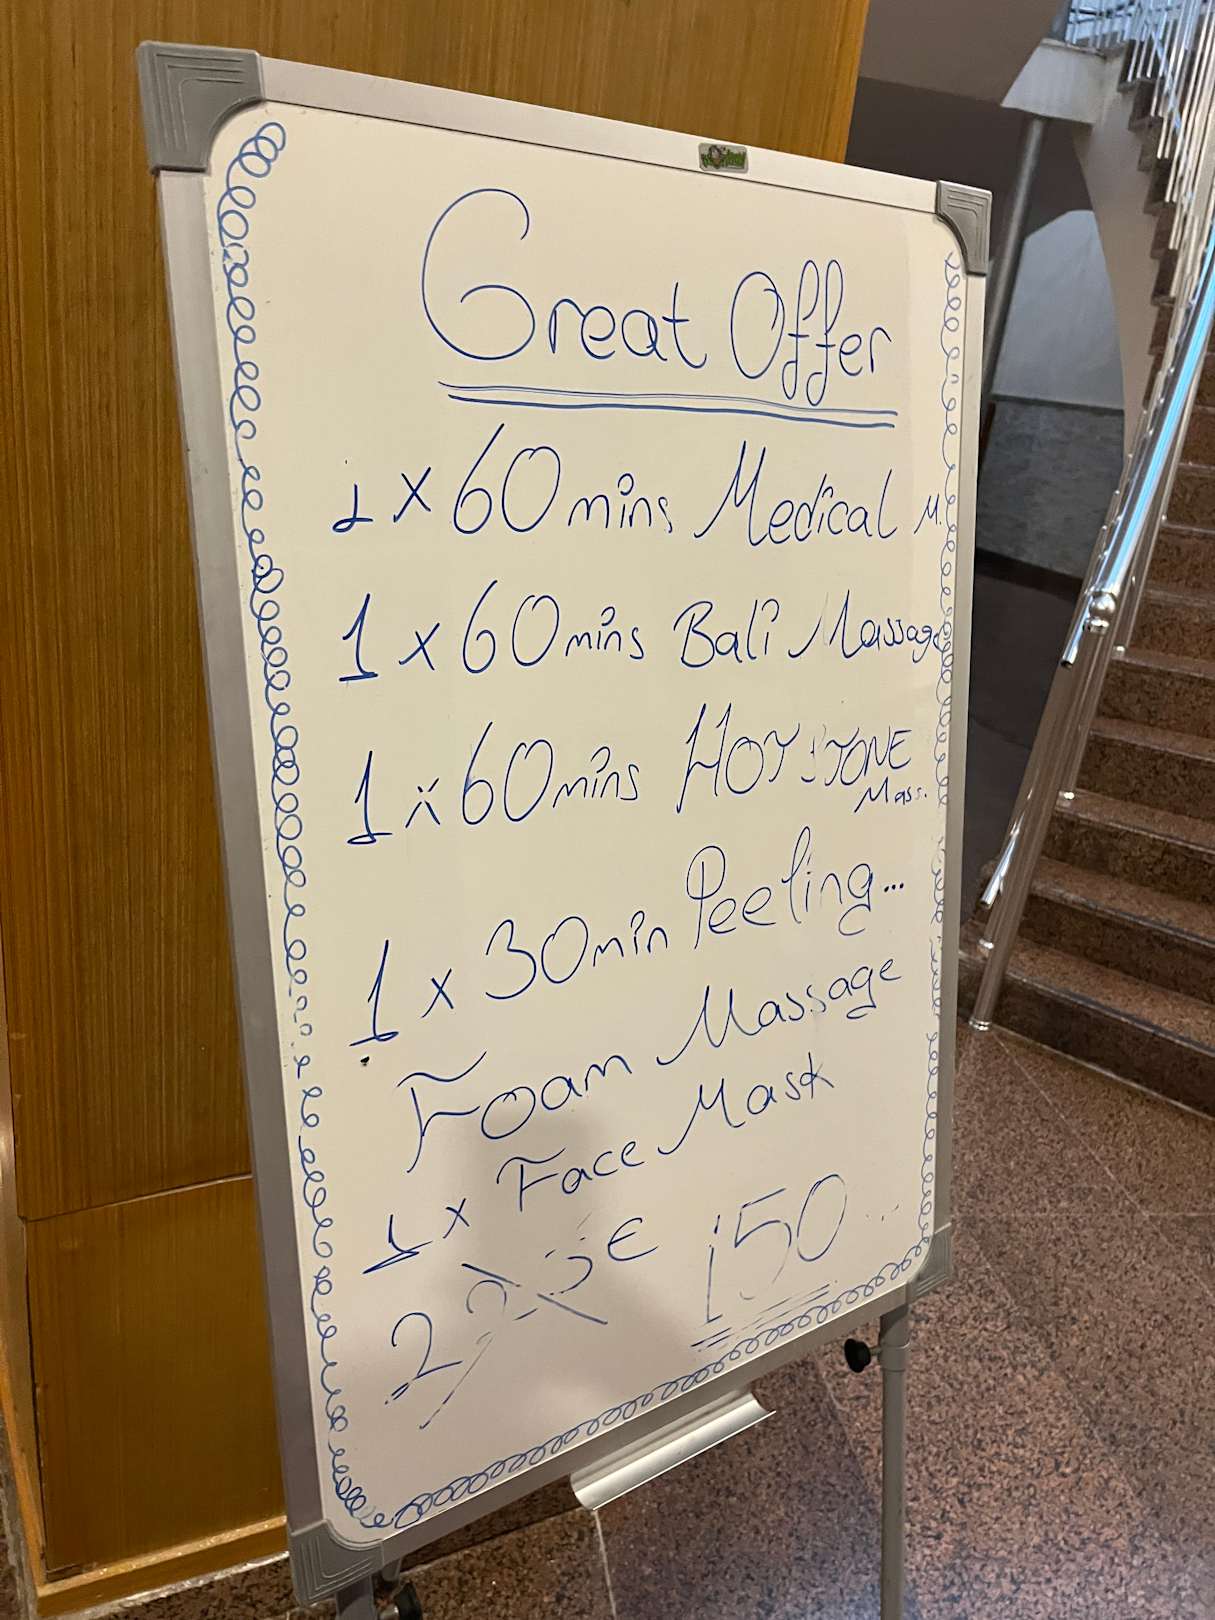 Great Offer
1 x 60 mins Medical M.
1 x 60 mins Bali Massage
1 x 60 mins HOT STONE
Mass.
1 x 30 min Peeling...
Foam Massage
1 x Face Mask
€ 150